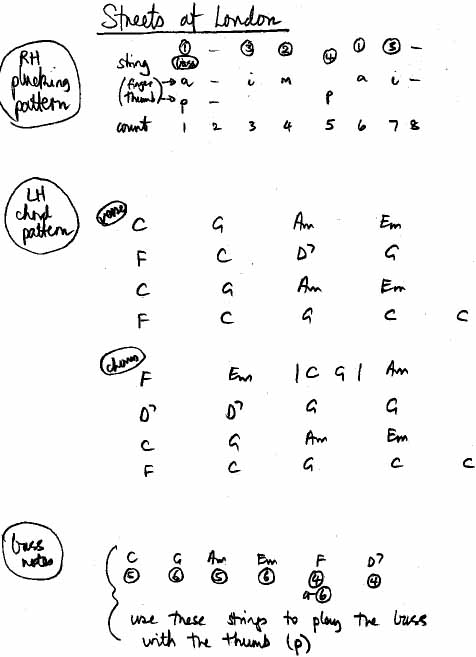 Streets of London
RH plucking pattern
① – ③ ② ④ ① ③ –
string bass
(finger → a – i m a i –
thumb) → p – p
count 1 2 3 4 5 6 7 8
LH chord pattern
verse
C G Am Em
F C D7 G
C G Am Em
F C G C C
chorus
F Em | C G | Am
D7 D7 G G
C G Am Em
F C G C C
bass notes
C G Am Em F D7
⑤ ⑥ ⑤ ⑥ ④ ④
or ⑥
use these strings to play the bass
with the thumb (p)